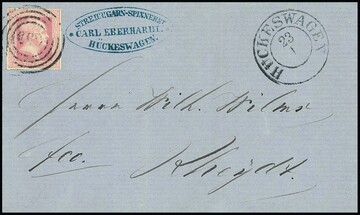 STREICHGARN-SPINNEREI
CARL EBERHARDT.
HÜCKESWAGEN.
HÜCKESWAGEN
23
Herrn Wilh. Wilms
fco. Rheydt.